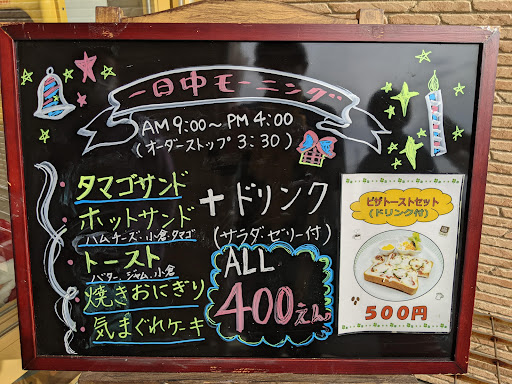 一日中モーニング
AM 9:00～PM 4:00
(オーダーストップ 3:30)
・タマゴサンド
・ホットサンド
ハムチーズ・小倉・タマゴ
・トースト
バター、ジャム、小倉
・焼きおにぎり
・気まぐれケーキ
+ドリンク
(サラダ・ゼリー付)
ALL
400えん
ピザトーストセット
(ドリンク付)
500円